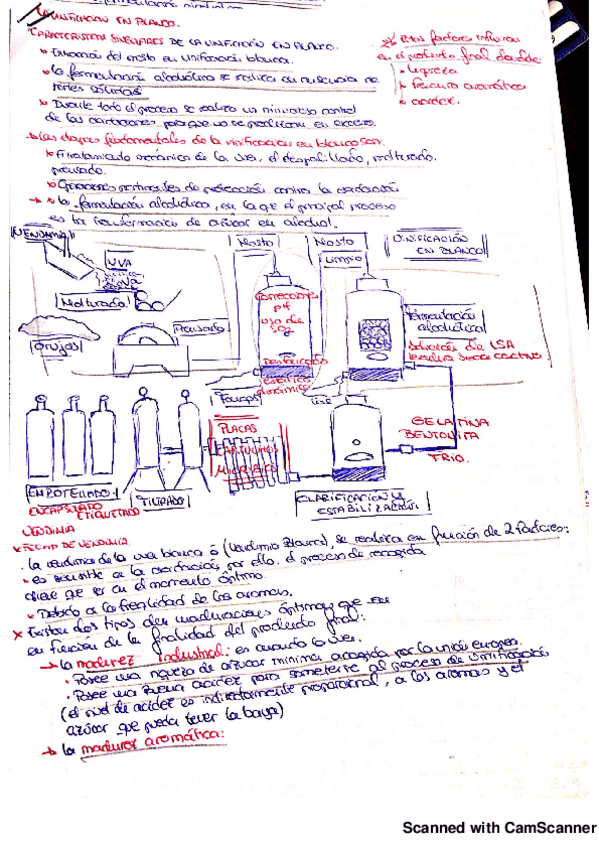 VINIFICACION EN BLANCO.
CARACTERISTICAS SINGULARES DE LA VINIFICACIÓN EN BLANCO.
* Estos factores influyen
en el producto final dándole:
ligereza
frescura aromática
acidez.
del mosto en vinificación blanca.
* La fermentación alcohólica se realiza en ausencia de
partes sólidas
* Durante todo el proceso se realiza un minucioso control
de las oxidaciones para que no se produzcan en exceso.
→ Las etapas fundamentales de la vinificación en blanco son.
* El tratamiento mecánico de la uva, el despalillado, molturado,
prensado.
* Operaciones de protección contra la oxidación
→ * la fermentación alcohólica, en la que el principal proceso
es la transformación de azúcar en alcohol.
VENDIMIA
UVA
Molturado
Orujos
Prensado
Mosto
Mosto
Limpio
VINIFICACIÓN
EN BLANCO
Correcciones
pH
uso de
SO2
Desfangado
estático
dinámico
Fangos
Fermentación
alcohólica
Adición de LSA
levadura seca activa
GELATINA
BENTONITA
FRIO.
PLACAS
CARTUCHOS
EMBOTELLADO
ENCAPSULADO
ETIQUETADO
FILTRADO
CLARIFICACION Y
ESTABILIZACIÓN
VENDIMIA
* FECHA DE VENDIMIA
. La vendimia de la uva blanca ó (Vendimia Blanca), se realiza en función de 2 factores:
• es sensible a la oxidación por ello, el proceso de recogida
tiene que ser en el momento óptimo.
• Debido a la fragilidad de los aromas.
* Existen dos tipos de maduraciones óptimas que son
en función de la finalidad del producto final:
→ la madurez industrial: es cuando la uva.
• Posee una riqueza de azúcar mínima acogida por la unión europea.
• Posee una buena acidez para someterse al proceso de vinificación
(el nivel de acidez es indirectamente proporcional, a los aromas y el
azúcar que pueda tener la baya)
→ la madurez aromática:
Scanned with CamScanner